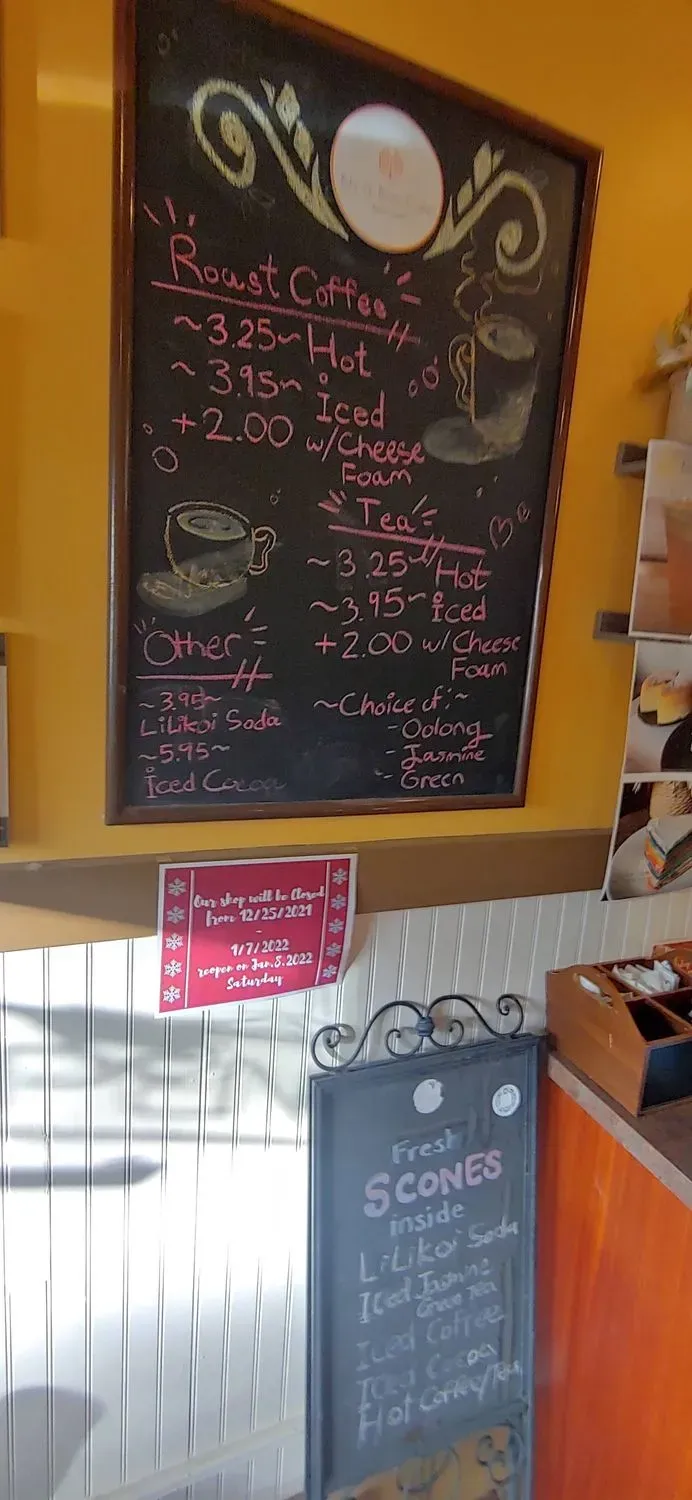 Roast Coffee
~3.25~ Hot
~3.95~ Iced
+2.00 w/Cheese
Foam
Tea
~3.25~ Hot
~3.95~ Iced
+2.00 w/Cheese
Foam
~Choice of:~
- Oolong
- Jasmine
- Green
Other
~3.95~
LiLikoi Soda
~5.95~
Iced Cocoa
Our shop will be Closed
from 12/25/2021
-
1/7/2022
reopen on Jan.8.2022
Saturday
Fresh
SCONES
inside
LiLikoi Soda
Iced Jasmine
Green Tea
Iced Coffee
Iced Cocoa
Hot Coffee/Tea